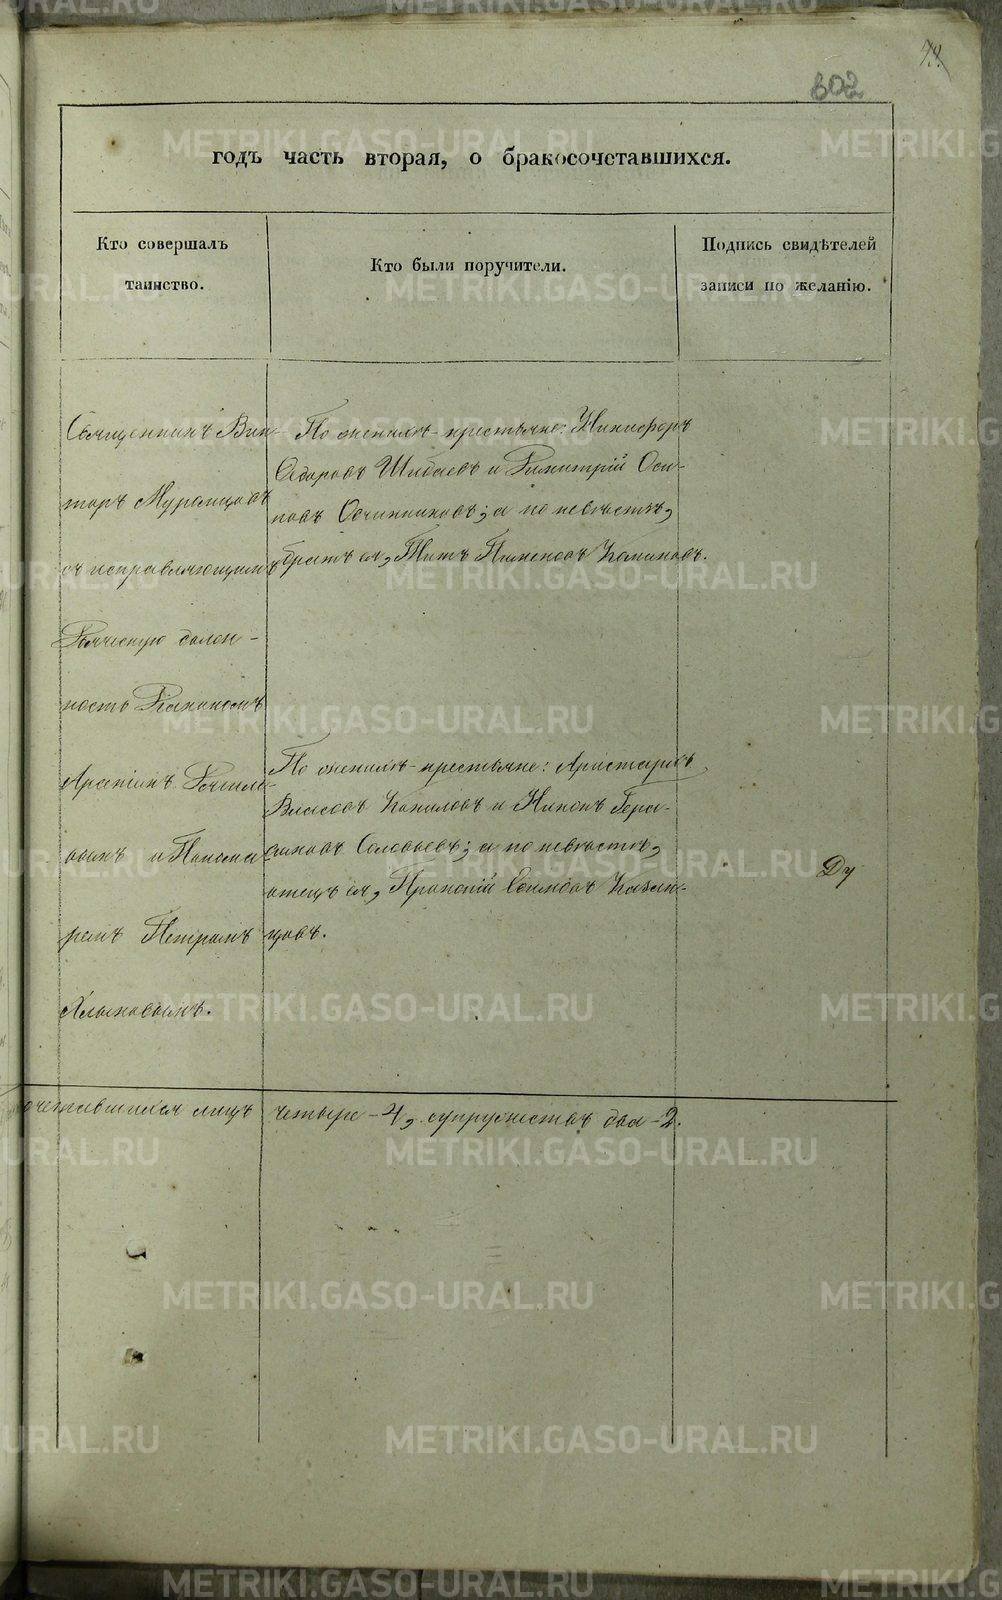 802
годъ часть вторая, о бракосочетавшихся.
Кто совершалъ
таинство.
Кто были поручители.
Подпись свидѣтелей
записи по желанію.
Священникъ Вик-
торъ Мурамцовъ
съ исправляющимъ
Дьяческую долж-
ность Діакономъ
Арсеніемъ
и Понома
ремъ Петромъ
Хлыновымъ.
По женихѣ крестьяне: Никифоръ
Ѳедоровъ Шибаевъ и Димитрій Оси-
повъ Овчинниковъ; а по невѣстѣ,
братъ ея, Титъ Пименовъ
По женихѣ крестьяне: Аристархъ
Власовъ и Никонъ Гера-
симовъ Соловьевъ; а по невѣстѣ,
отецъ ея, Казан-
цовъ.
Ду
очетавшихся лицъ четыре - 4, супружествъ два - 2.
METRIKI.GASO-URAL.RU